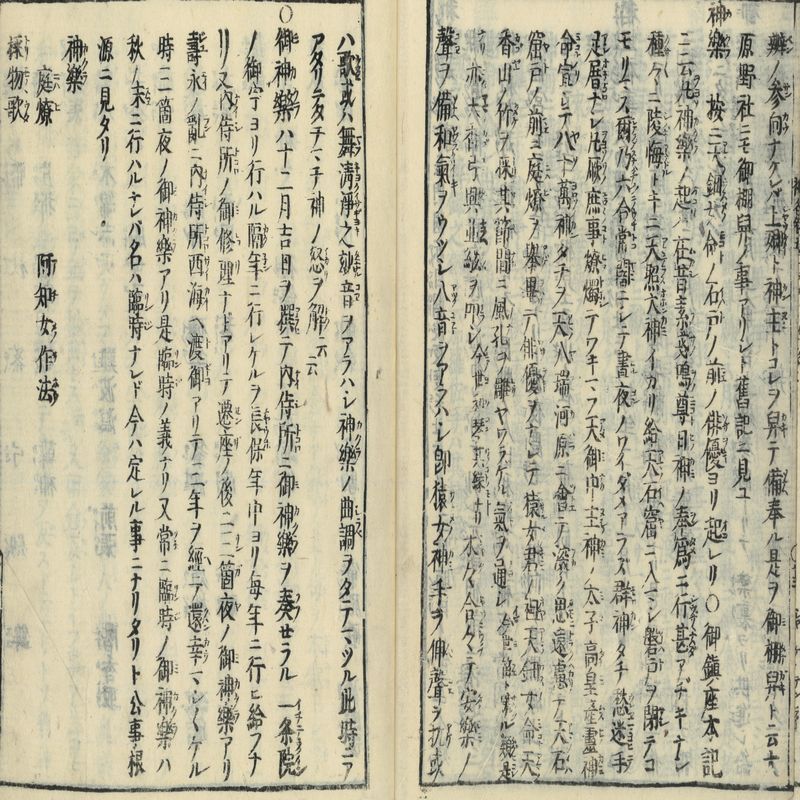 辨ノ參向ナケレバ上卿ト神主トコレヲ舁テ備奉ル是ヲ御棚舁ト云大
原野社ニモ御棚舁ノ事アリシト舊記ニ見ユ
神樂 按ニ天鈿女命ノ石戸ノ前ノ俳優ヨリ起レリ〇御鎮座本記
ニ云凡神樂ノ起ハ在昔素戔嗚尊日神ノ奉爲ニ行甚アヂキナシ
種々ニ陵侮トキニ天照大神イカリ給天石窟ニ入マシ磐戸ヲ閉テコ
モリマス爾乃六合常闇ニシテ晝夜ノワイダメアラズ群神タチ愁迷手
足厝ナシ凡厥庶事燎燭テワキマフ天御中主神ノ太子高皇産靈神
命宣シテ八十萬神タチヲ天八湍河原ニ會テ深ク思遠慮テ天石
窟戸ノ前ニ庭燎ヲ擧畢テ俳優ヲナシテ猿女君ノ祖天鈿女命天
香山ノ竹ヲ採其節間ニ風孔ヲ雕ヤワラゲル氣ヲ通シ今世ノ笛ト号ル類是
ナリ亦天香弓興並絃ヲ叩シ今世ノ和琴其縁ナリ木々合々テ安樂ノ
聲ヲ備和氣ヲウツシ八音ヲアラハシ即猿女神手ヲ伸聲ヲ抗或
ハ歌或ハ舞清淨之妙音ヲアラハシ神樂ノ曲調ヲタテマツル此時ニア
アタリテタチマチ神ノ怒ヲ解云云
〇御神樂ハ十二月吉日ヲ撰テ内侍所ニ御神樂ヲ奏セラル一条院
ノ御宇ヨリ行ハル隔年ニ行レケルヲ長保年中ヨリ毎年ニ行ヒ給フナ
リ又内侍所ノ御修理ナドアリテ遷座ノ後ニ二三箇夜ノ御神樂アリ
壽永ノ亂ニ内侍所西海ヘ渡御アリテ三年ヲ經テ還幸マシ〱ケル
時三箇夜ノ御神樂アリ是臨時ノ義ナリ又常ニ臨時ノ御神樂ハ
秋ノ末ニ行ハルシバ名ハ臨時ナレド今ハ定レル事ニナリタリト公事根
源ニ見タリ
神樂
庭燎 阿知女作法
採物歌